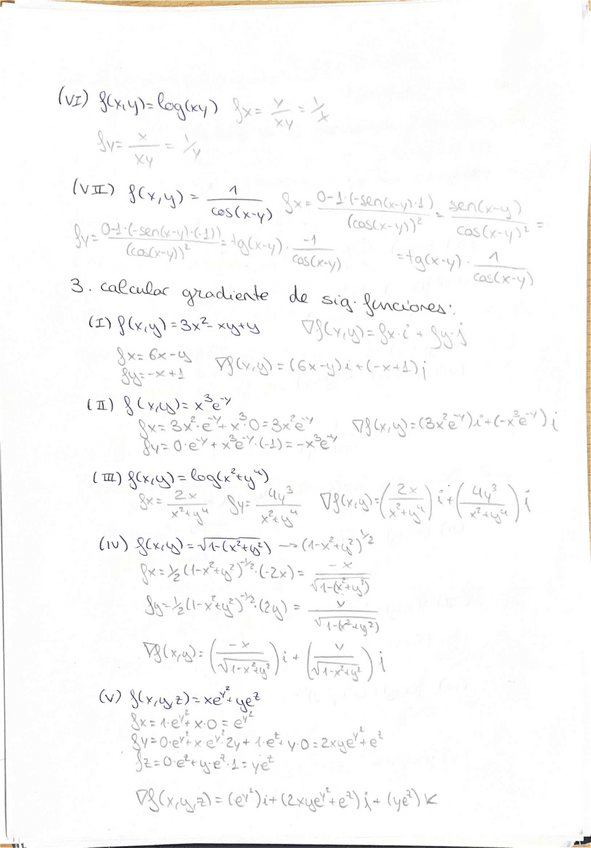 (VI) f(x,y)=log(xy) fx= y/xy = 1/x
fy= x/xy = 1/y
(VII) f(x,y) = 1/cos(x-y) fx= 0-1·(-sen(x-y)·1)/(cos(x-y))² = sen(x-y)/cos(x-y)² =
fy= 0-1·(-sen(x-y)·(-1))/(cos(x-y))² = tg(x-y)· -1/cos(x-y) = tg(x-y)· 1/cos(x-y)
3. calcular gradiente de sig. funciones:
(I) f(x,y)=3x²-xy+y ∇f(x,y)=fx·i + fy·j
fx= 6x-y
fy=-x+1 ∇f(x,y)=(6x-y)i+(-x+1)j
(II) f(x,y)=x³e⁻ʸ
fx= 3x²·e⁻ʸ+x³·0=3x²e⁻ʸ ∇f(x,y)=(3x²e⁻ʸ)i+(-x³e⁻ʸ)j
fy= 0·e⁻ʸ+x³e⁻ʸ·(-1)=-x³e⁻ʸ
(III) f(x,y)=log(x²+y⁴)
fx= 2x/x²+y⁴ fy= 4y³/x²+y⁴ ∇f(x,y)=(2x/x²+y⁴)i+(4y³/x²+y⁴)j
(IV) f(x,y)=√1-(x²+y²) →(1-x²+y²)^1/2
fx=1/2(1-x²+y²)^-1/2·(-2x)= -x/√1-(x²+y²)
fy=1/2(1-x²+y²)^-1/2·(2y) = y/√1-(x²+y²)
∇f(x,y)=(-x/√1-x²+y²)i+(y/√1-x²+y²)j
(V) f(x,y,z)=xe^y²+ye^z
fx=1·e^y²+x·0=e^y²
fy=0·e^y²+x·e^y²·2y+1·e^z+y·0=2xye^y²+e^z
fz=0·e^z+y·e^z·1=ye^z
∇f(x,y,z)=(e^y²)i+(2xye^y²+e^z)j+(ye^z)k